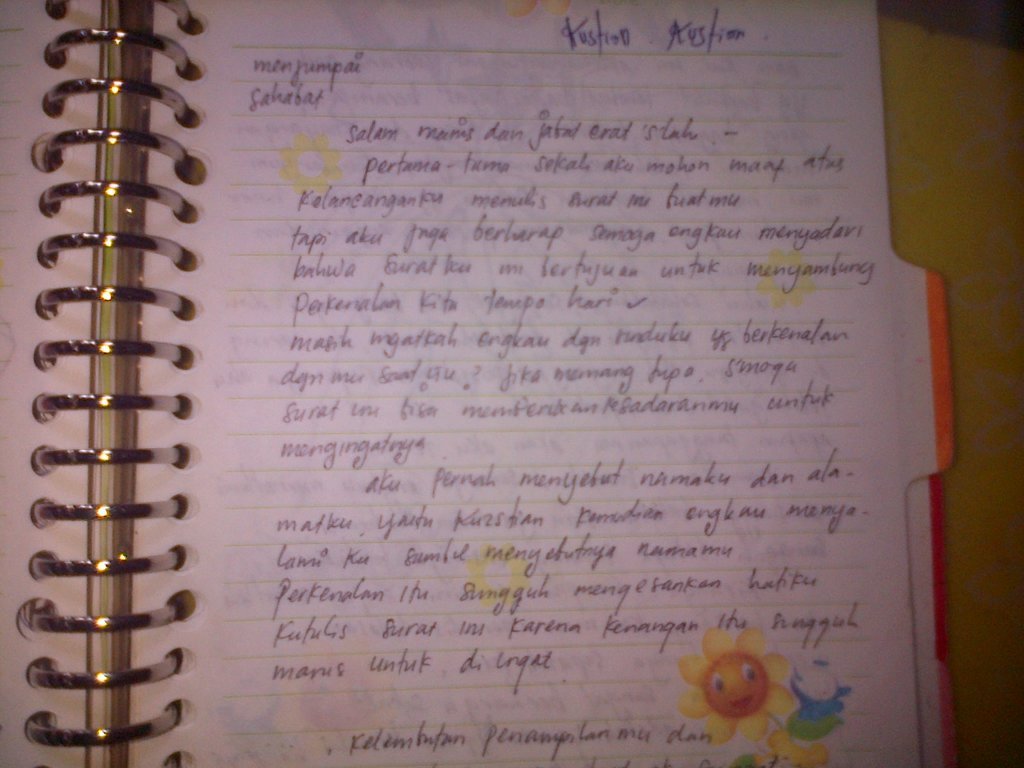 Kustian . Kustian .
menjumpai
Sahabat
Salam manis dan jabat erat s'lah . -
pertama-tama sekali aku mohon maaf atas
kelancanganku menulis surat ini buatmu
tapi aku juga berharap semoga engkau menyadari
bahwa suratku ini bertujuan untuk menyambung
perkenalan kita tempo hari
masih ingatkah engkau dgn rinduku yg berkenalan
dgn mu saat itu ? jika memang lupa. S'moga
surat ini bisa memberikan kesadaranmu untuk
mengingatnya
aku pernah menyebut namaku dan ala-
matku yaitu Kustian kemudian engkau menya-
lami ku sambil menyebutnya namamu
Perkenalan itu sungguh mengesankan hatiku
Kutulis surat ini karena kenangan itu sungguh
manis untuk di ingat
Kelembutan penampilanmu dan